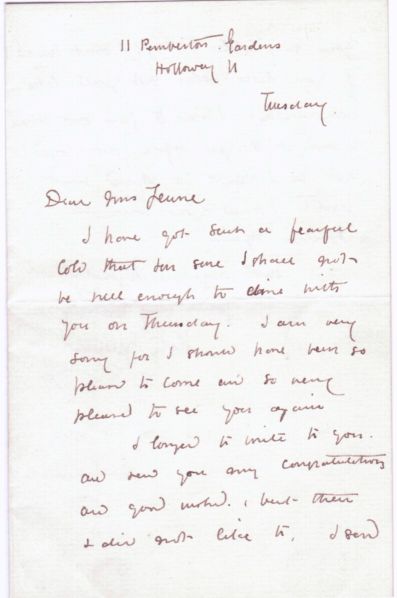 11 Pemberton Gardens
Holloway N
Tuesday.
Dear Mrs Jeune
I have got such a fearful
cold that Im sure I shall not
be well enough to dine with
you on Thursday. I am very
sorry for I should have been so
pleased to come and so very
pleased to see you again
I longed to write to you.
and send you my congratulations
and good wishes. but then
I did not like to, I send